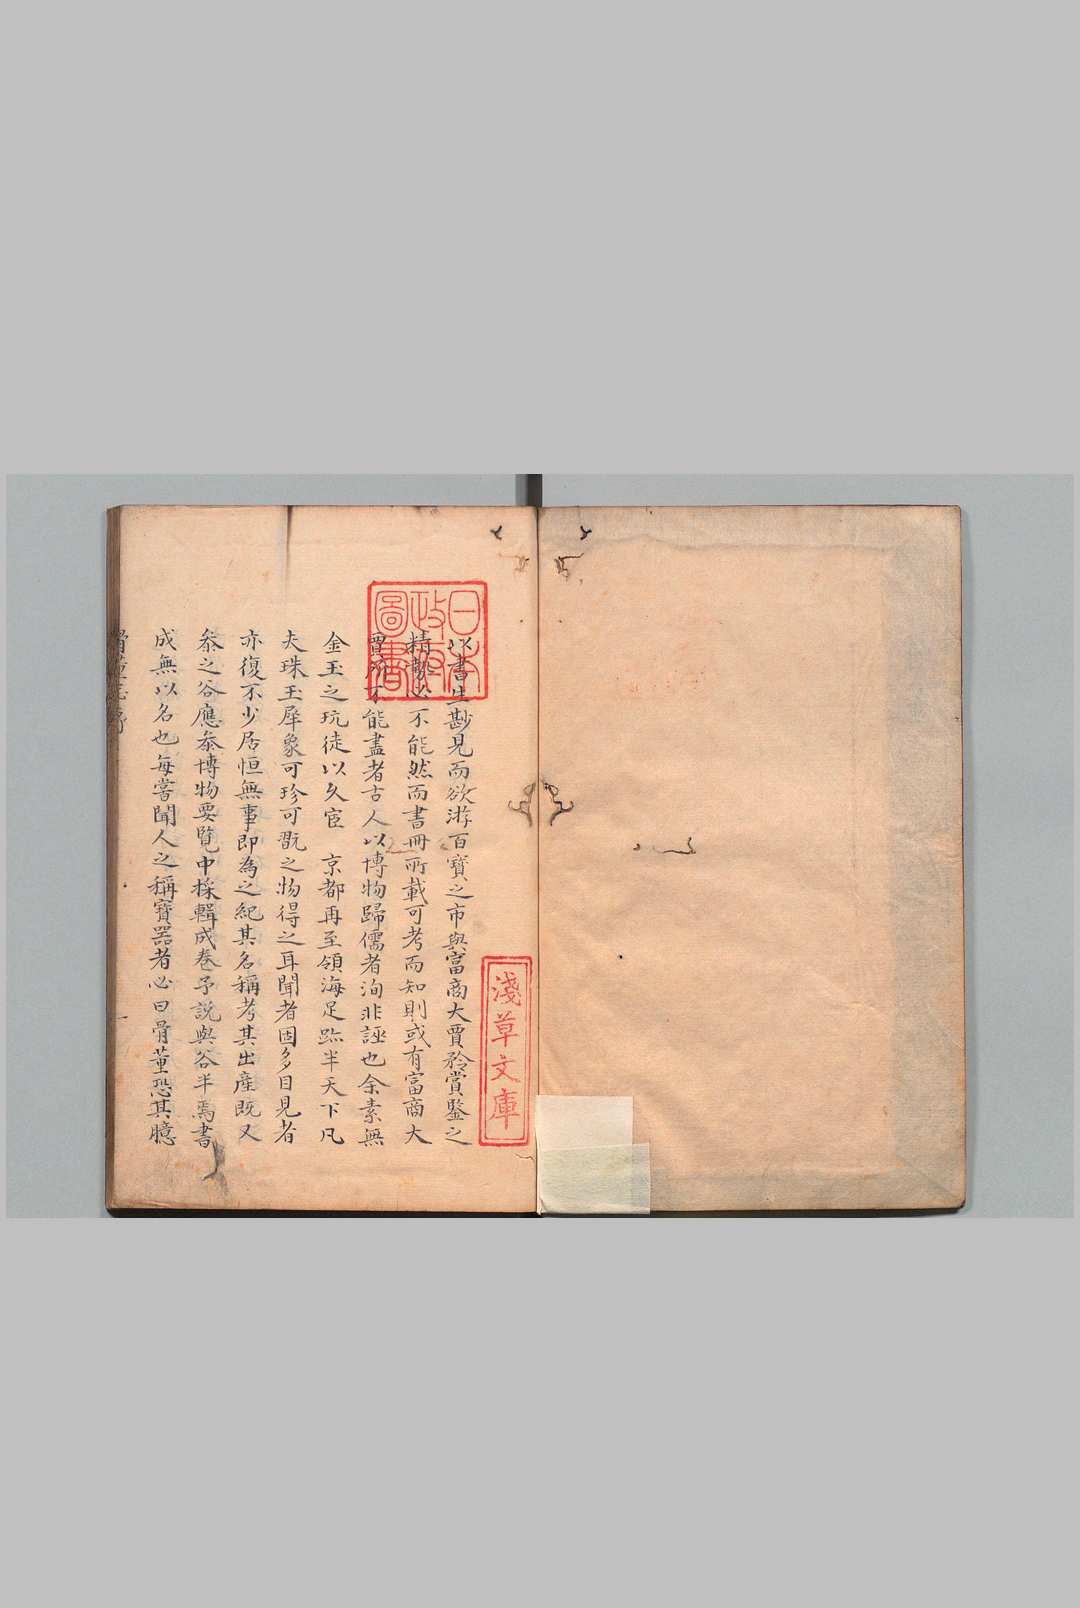 以書生尠見而欲游百寶之市與富商大賈矜賞鑒之
精覈必不能然而書冊所載可考而知則或有富商大
賈所不能盡者古人以博物歸儒者洵非誣也余素無
金玉之玩徒以久宦 京都再至領海足跡半天下凡
夫珠玉犀象可珍可翫之物得之耳聞者固多目見者
亦復不少居恒無事即為之紀其名稱考其出產既又
叅之谷應泰博物要覧中採輯成巻予説與谷半焉書
成無以名也每嘗聞人之稱寶器者必曰骨董恐其臆
日本
政府
圖書
淺草文庫
骨董志 序
一